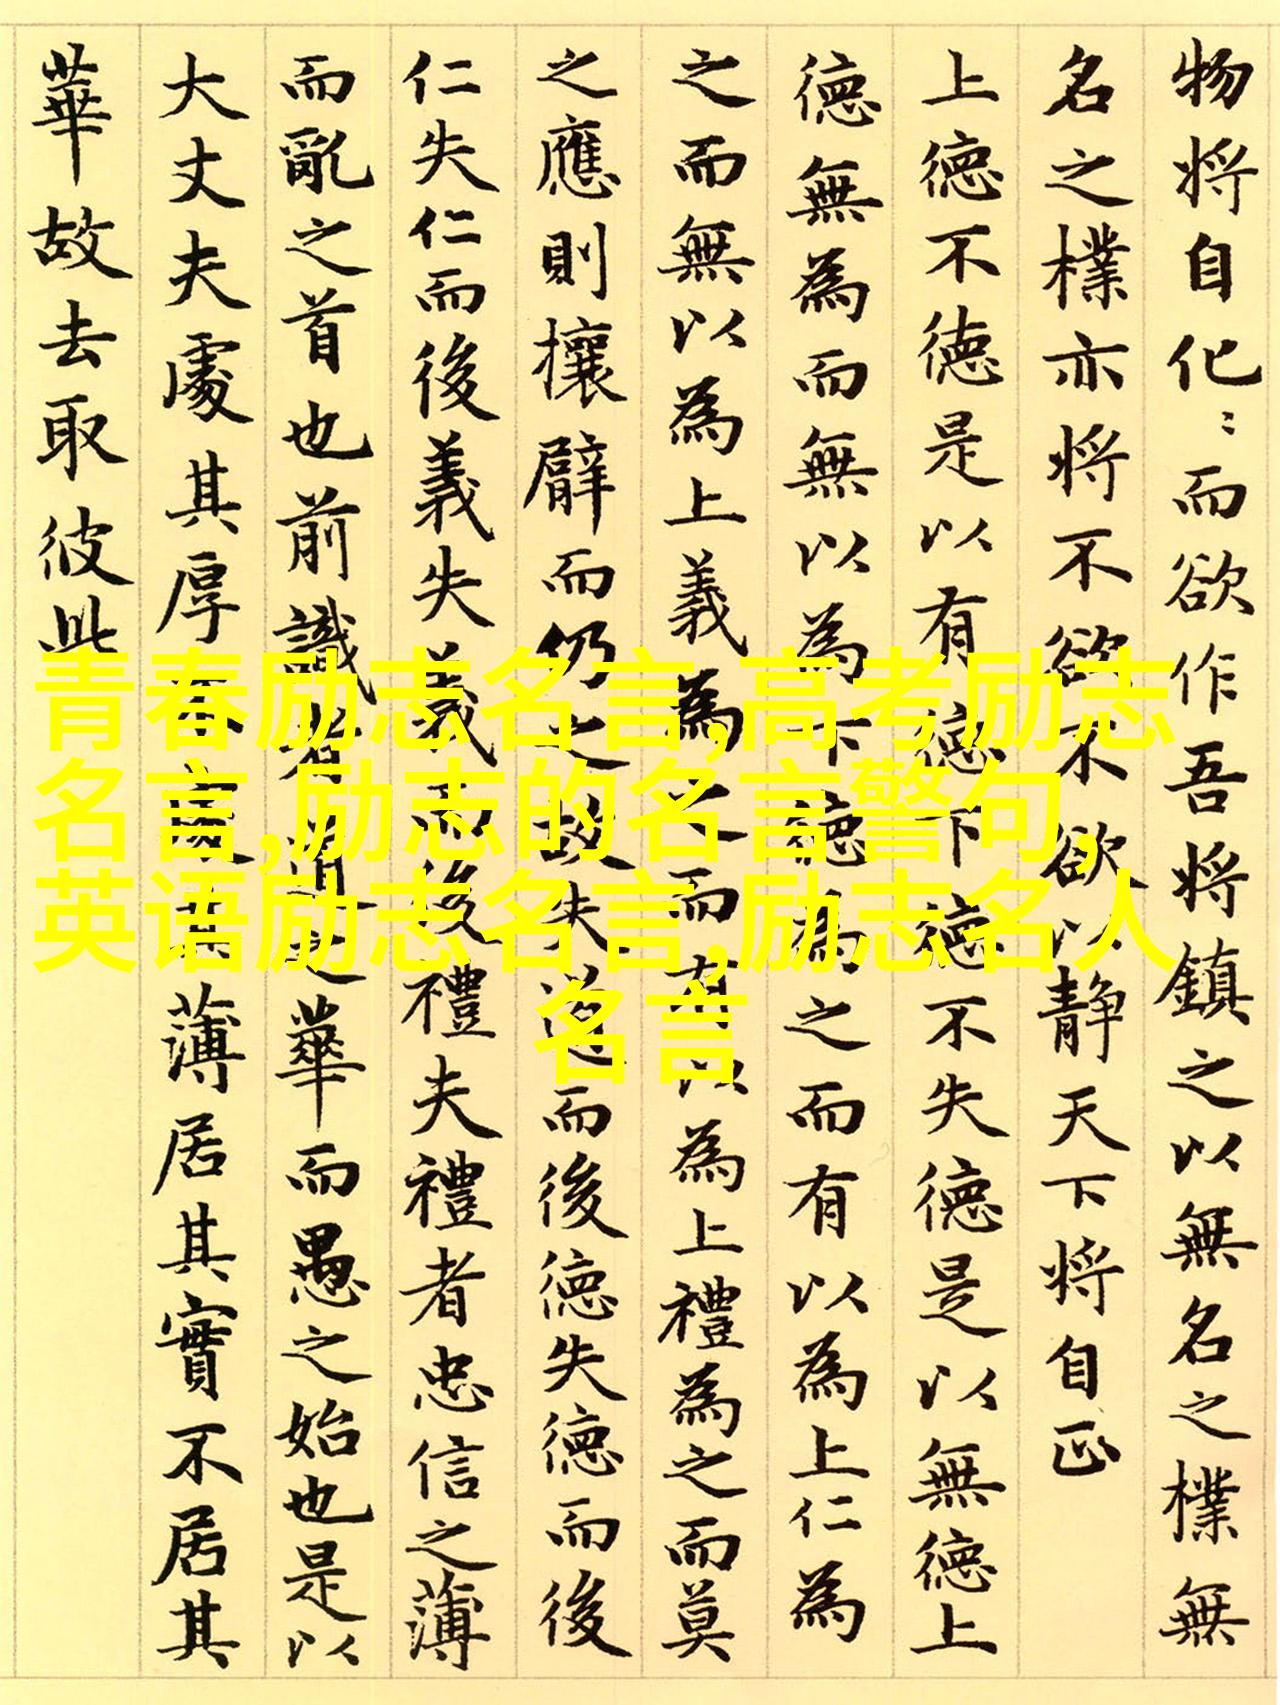 物将自化〻而欲作吾将鎮之以無名之樸無
名之樸亦将不欲不欲以静天下将自正
上德不德是以有德下德不失德是以無德上
德無為而無以為下德為之而有以為上仁為
之而無以為上義為之而有以為上禮為之而莫
之應則攘臂而仍之故失道而後德失德而後
仁失仁而後義失義而後禮夫禮者忠信之薄
而亂之首也前識者道之華而愚之始也是以
大丈夫處其厚不處其薄居其實不居其
華故去取彼此
青春励志名言,高考励志
名言,励志的名言警句,
英语励志名言,励志名人
名言